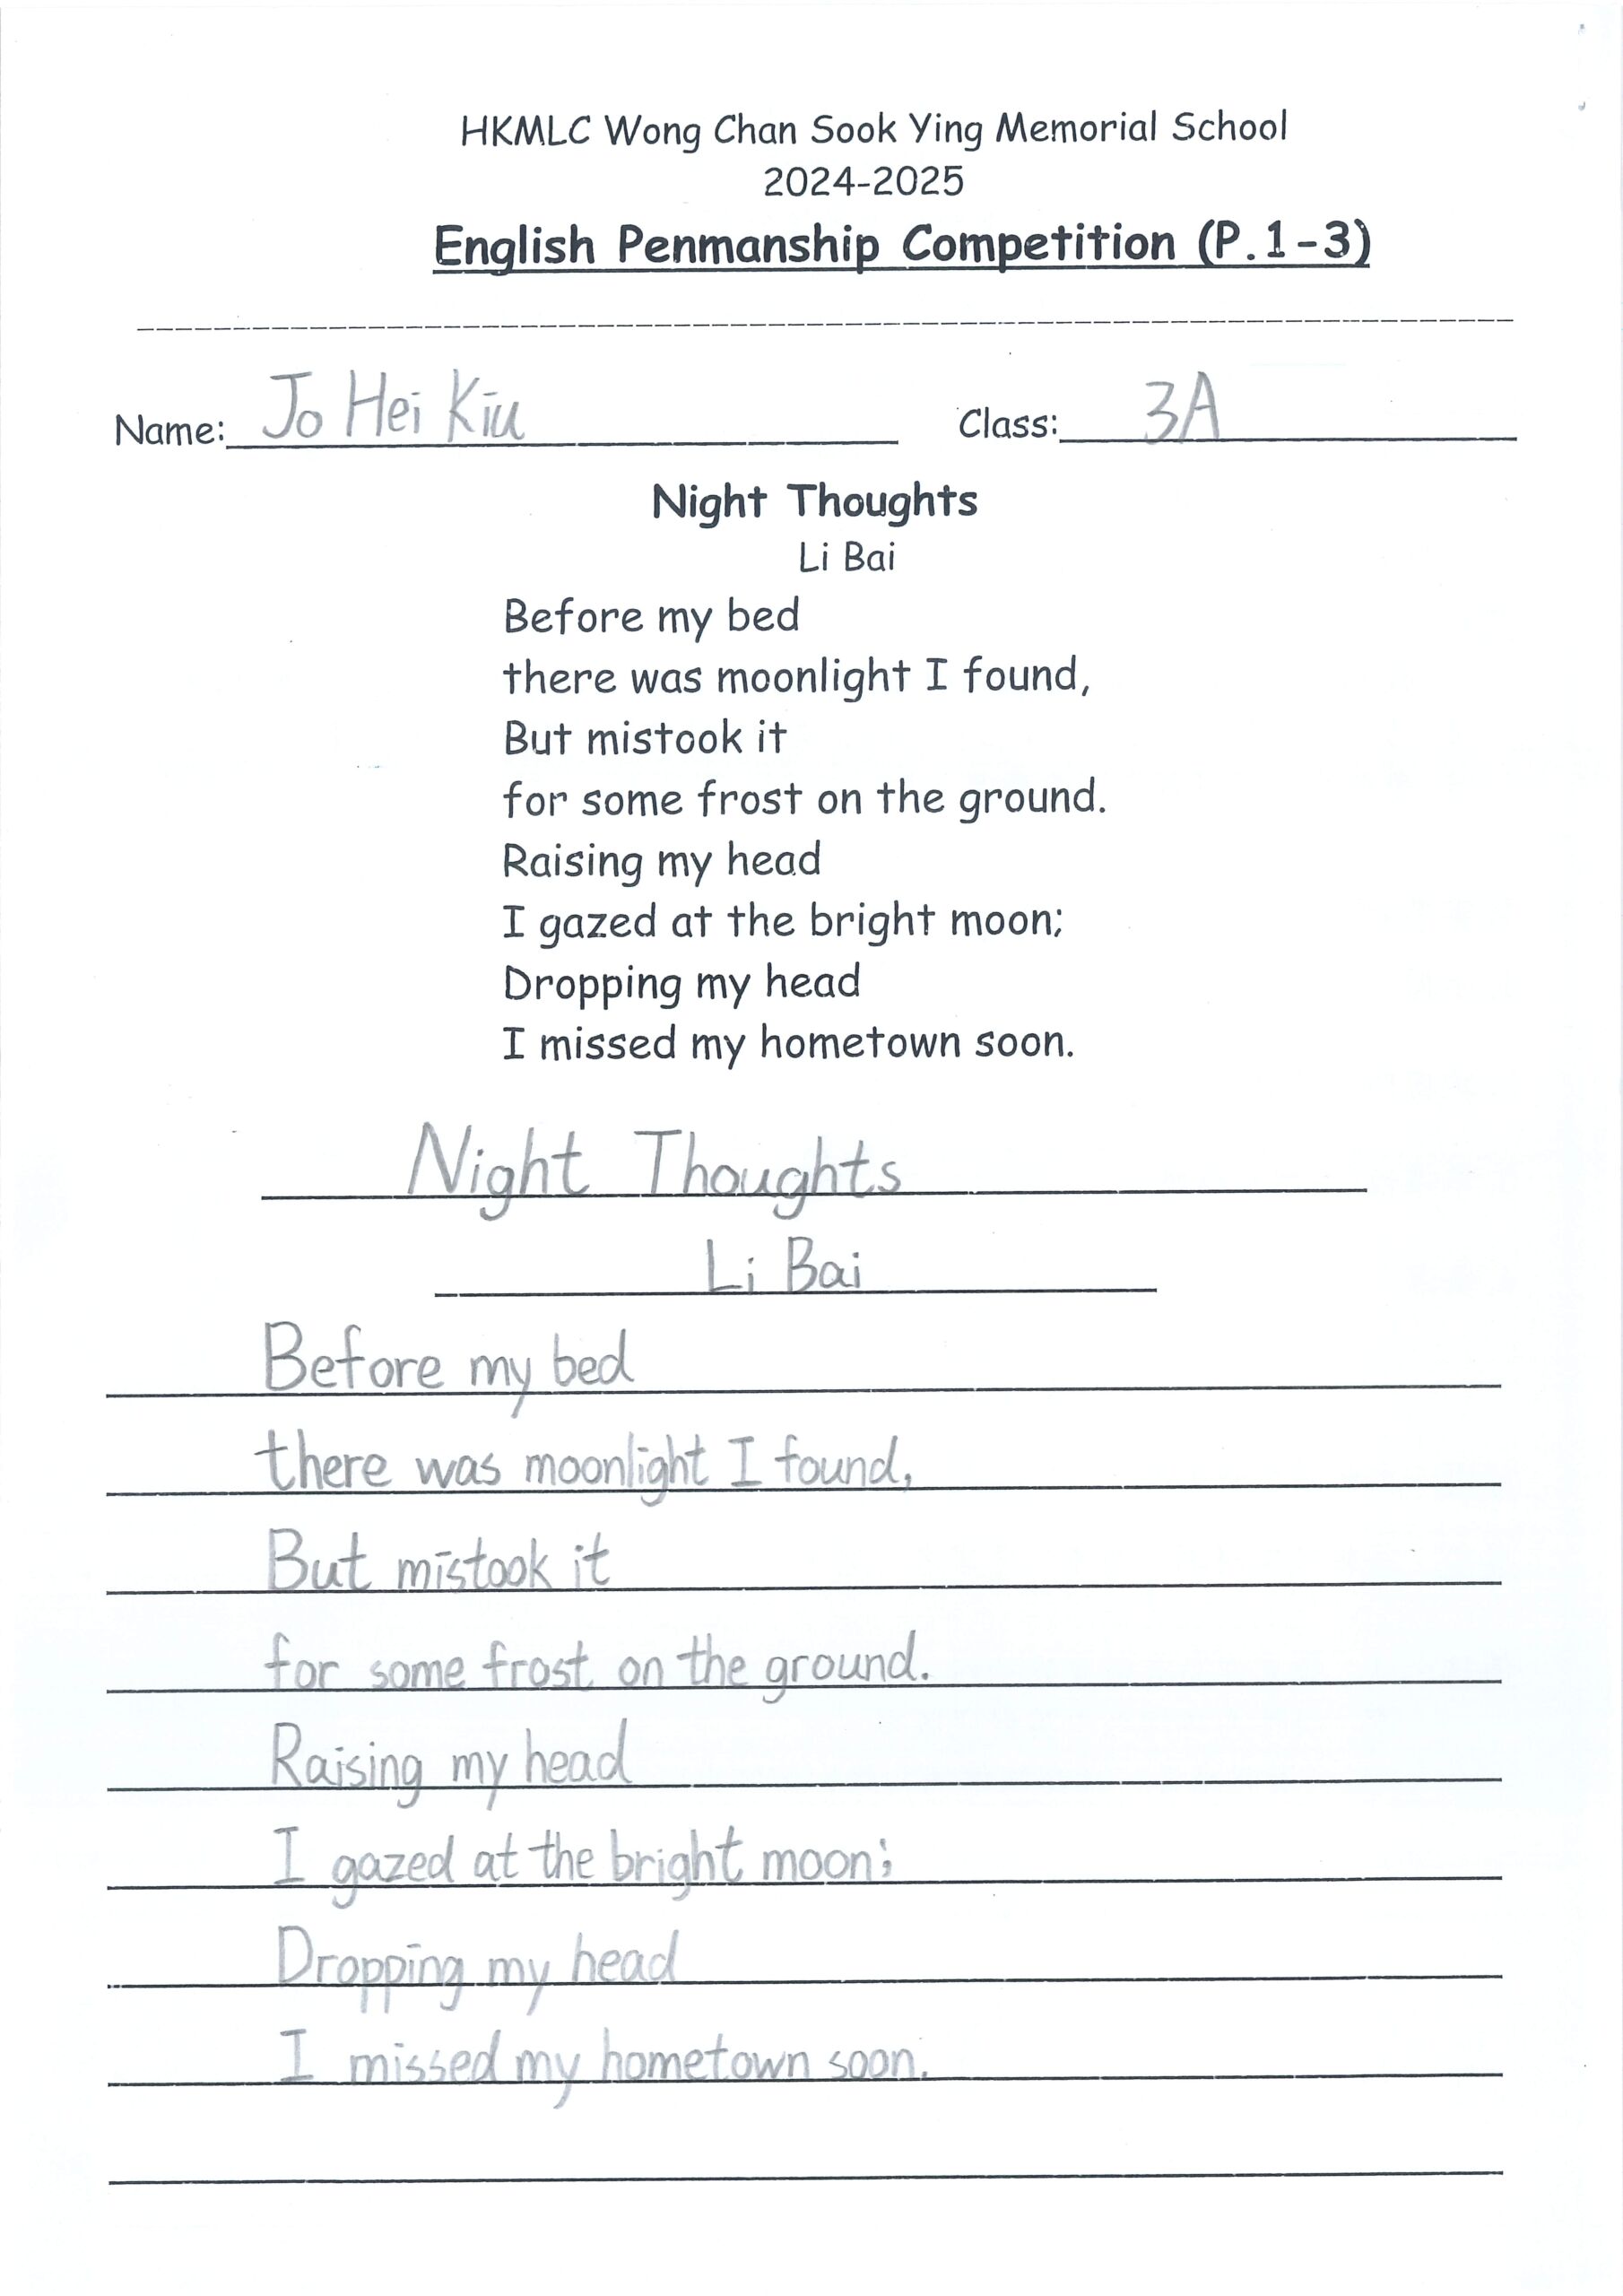 HKMLC Wong Chan Sook Ying Memorial School
2024-2025
English Penmanship Competition (P.1-3)
Name: Jo Hei Kiu Class: 3A
Night Thoughts
Li Bai
Before my bed
there was moonlight I found,
But mistook it
for some frost on the ground.
Raising my head
I gazed at the bright moon;
Dropping my head
I missed my hometown soon.
Night Thoughts
Li Bai
Before my bed
there was moonlight I found,
But mistook it
for some frost on the ground.
Raising my head
I gazed at the bright moon;
Dropping my head
I missed my hometown soon.